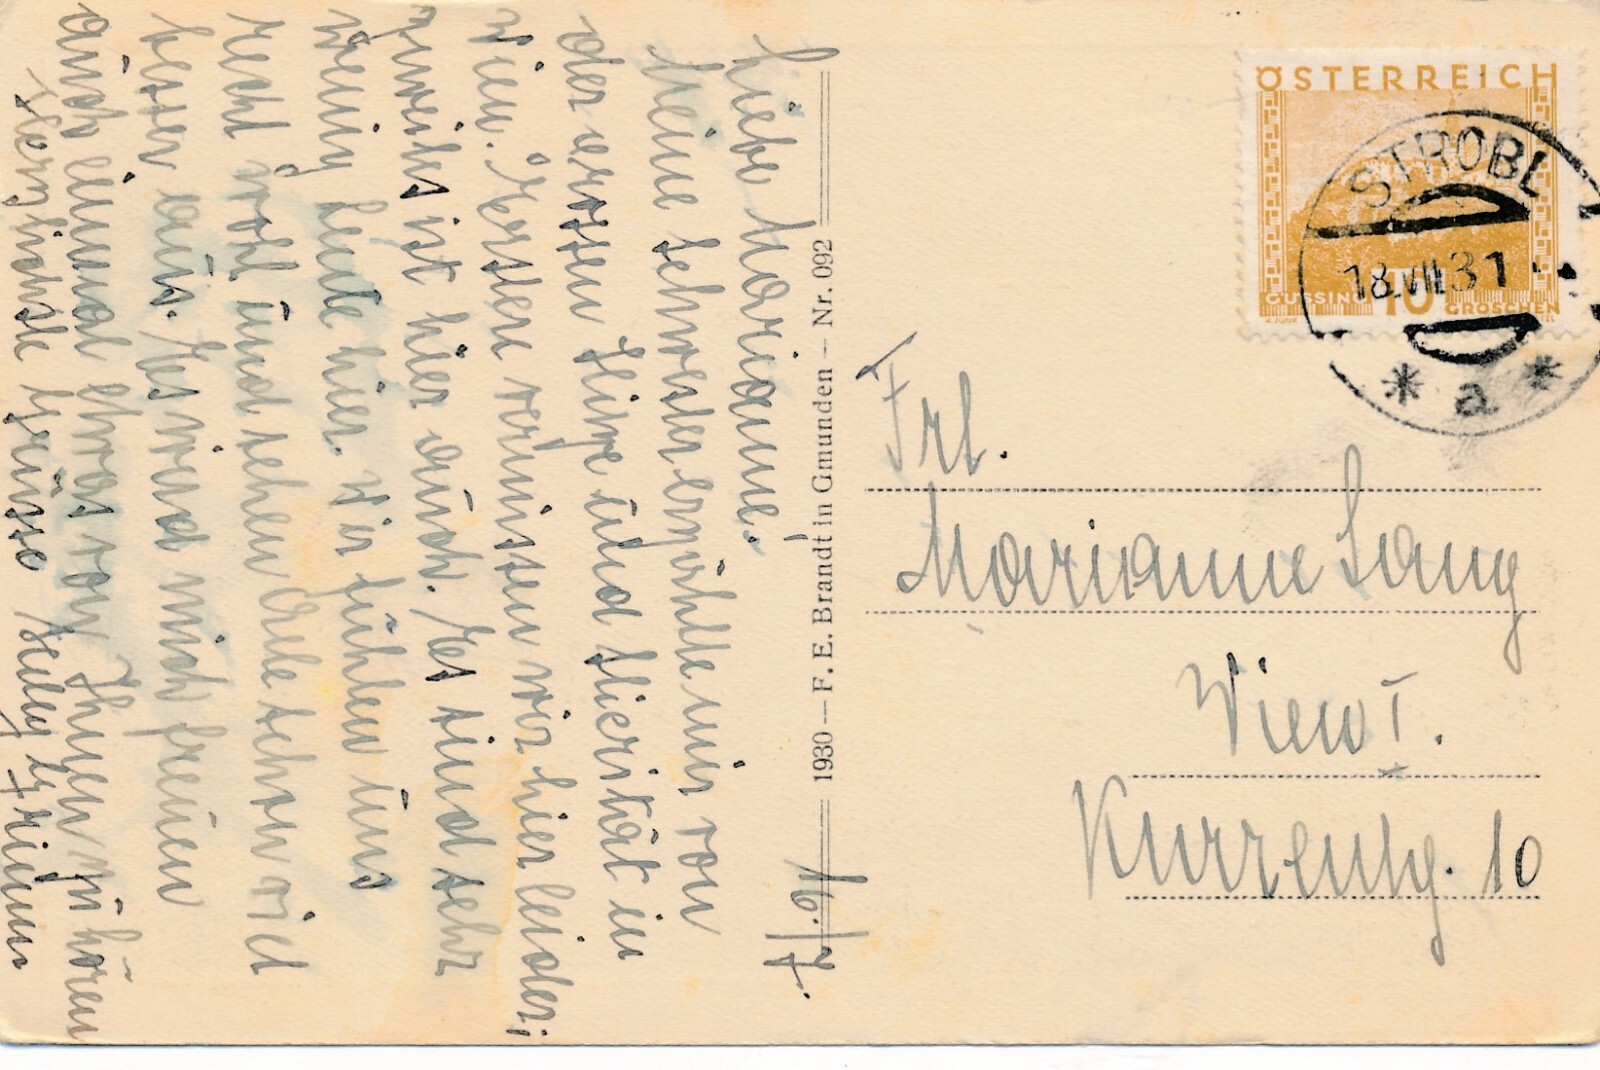 Liebe Marianne!
Meine Schwester erzählte mir von
der grossen Hitze und Stickluft in
Wien. Erstere vermissen wir hier leider;
ist hier auch. Es sind sehr
wenig Leute hier. Wir fühlen uns
recht wohl und sehen alle schon viel
besser aus. Es wird mich freuen
auch einmal etwas von Ihnen zu hören
Herzlichste Grüsse
1930 — F. E. Brandt in Gmunden — Nr. 092
ÖSTERREICH
GÜSSING 10 GROSCHEN
STROBL
18.VII.31
* a *
Frl.
Marianne Lang
Wien I.
Kurrentg. 10